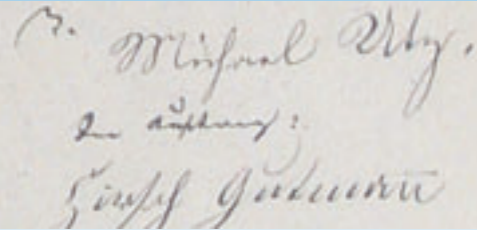 Michael Utz.
Im Auftrag:
Hirsch Gutmann